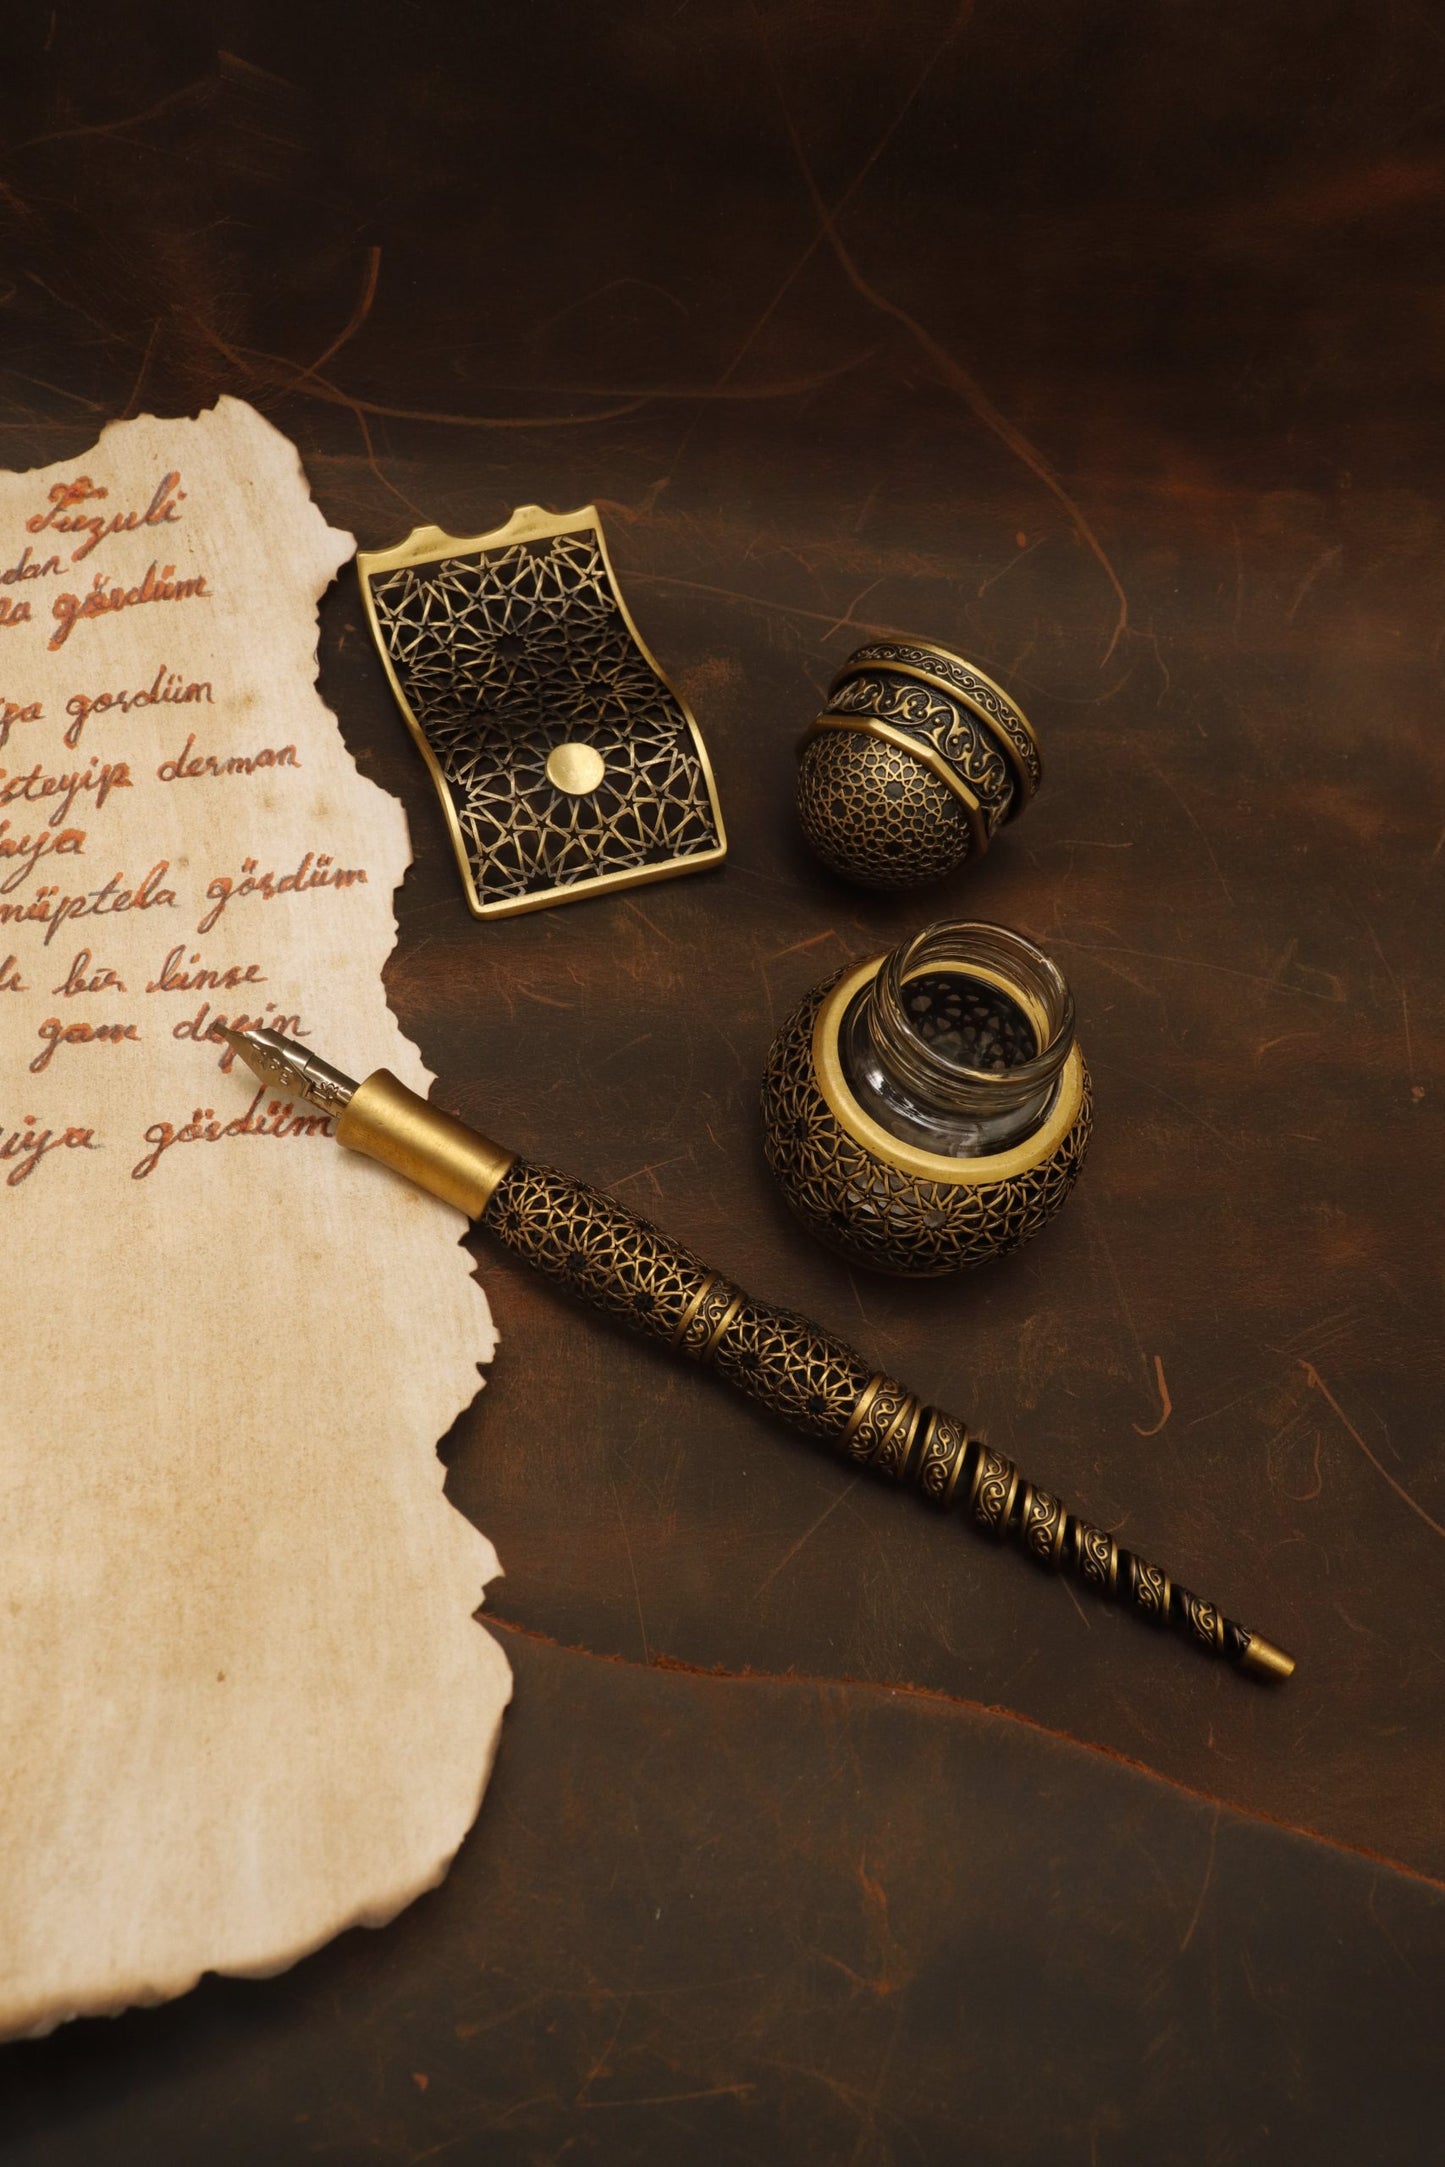 Fuzuli
dan
za gördüm
ıya gördüm
isteyip derman
aya
müptela gördüm
bir kimse
gam değin
iya gördüm